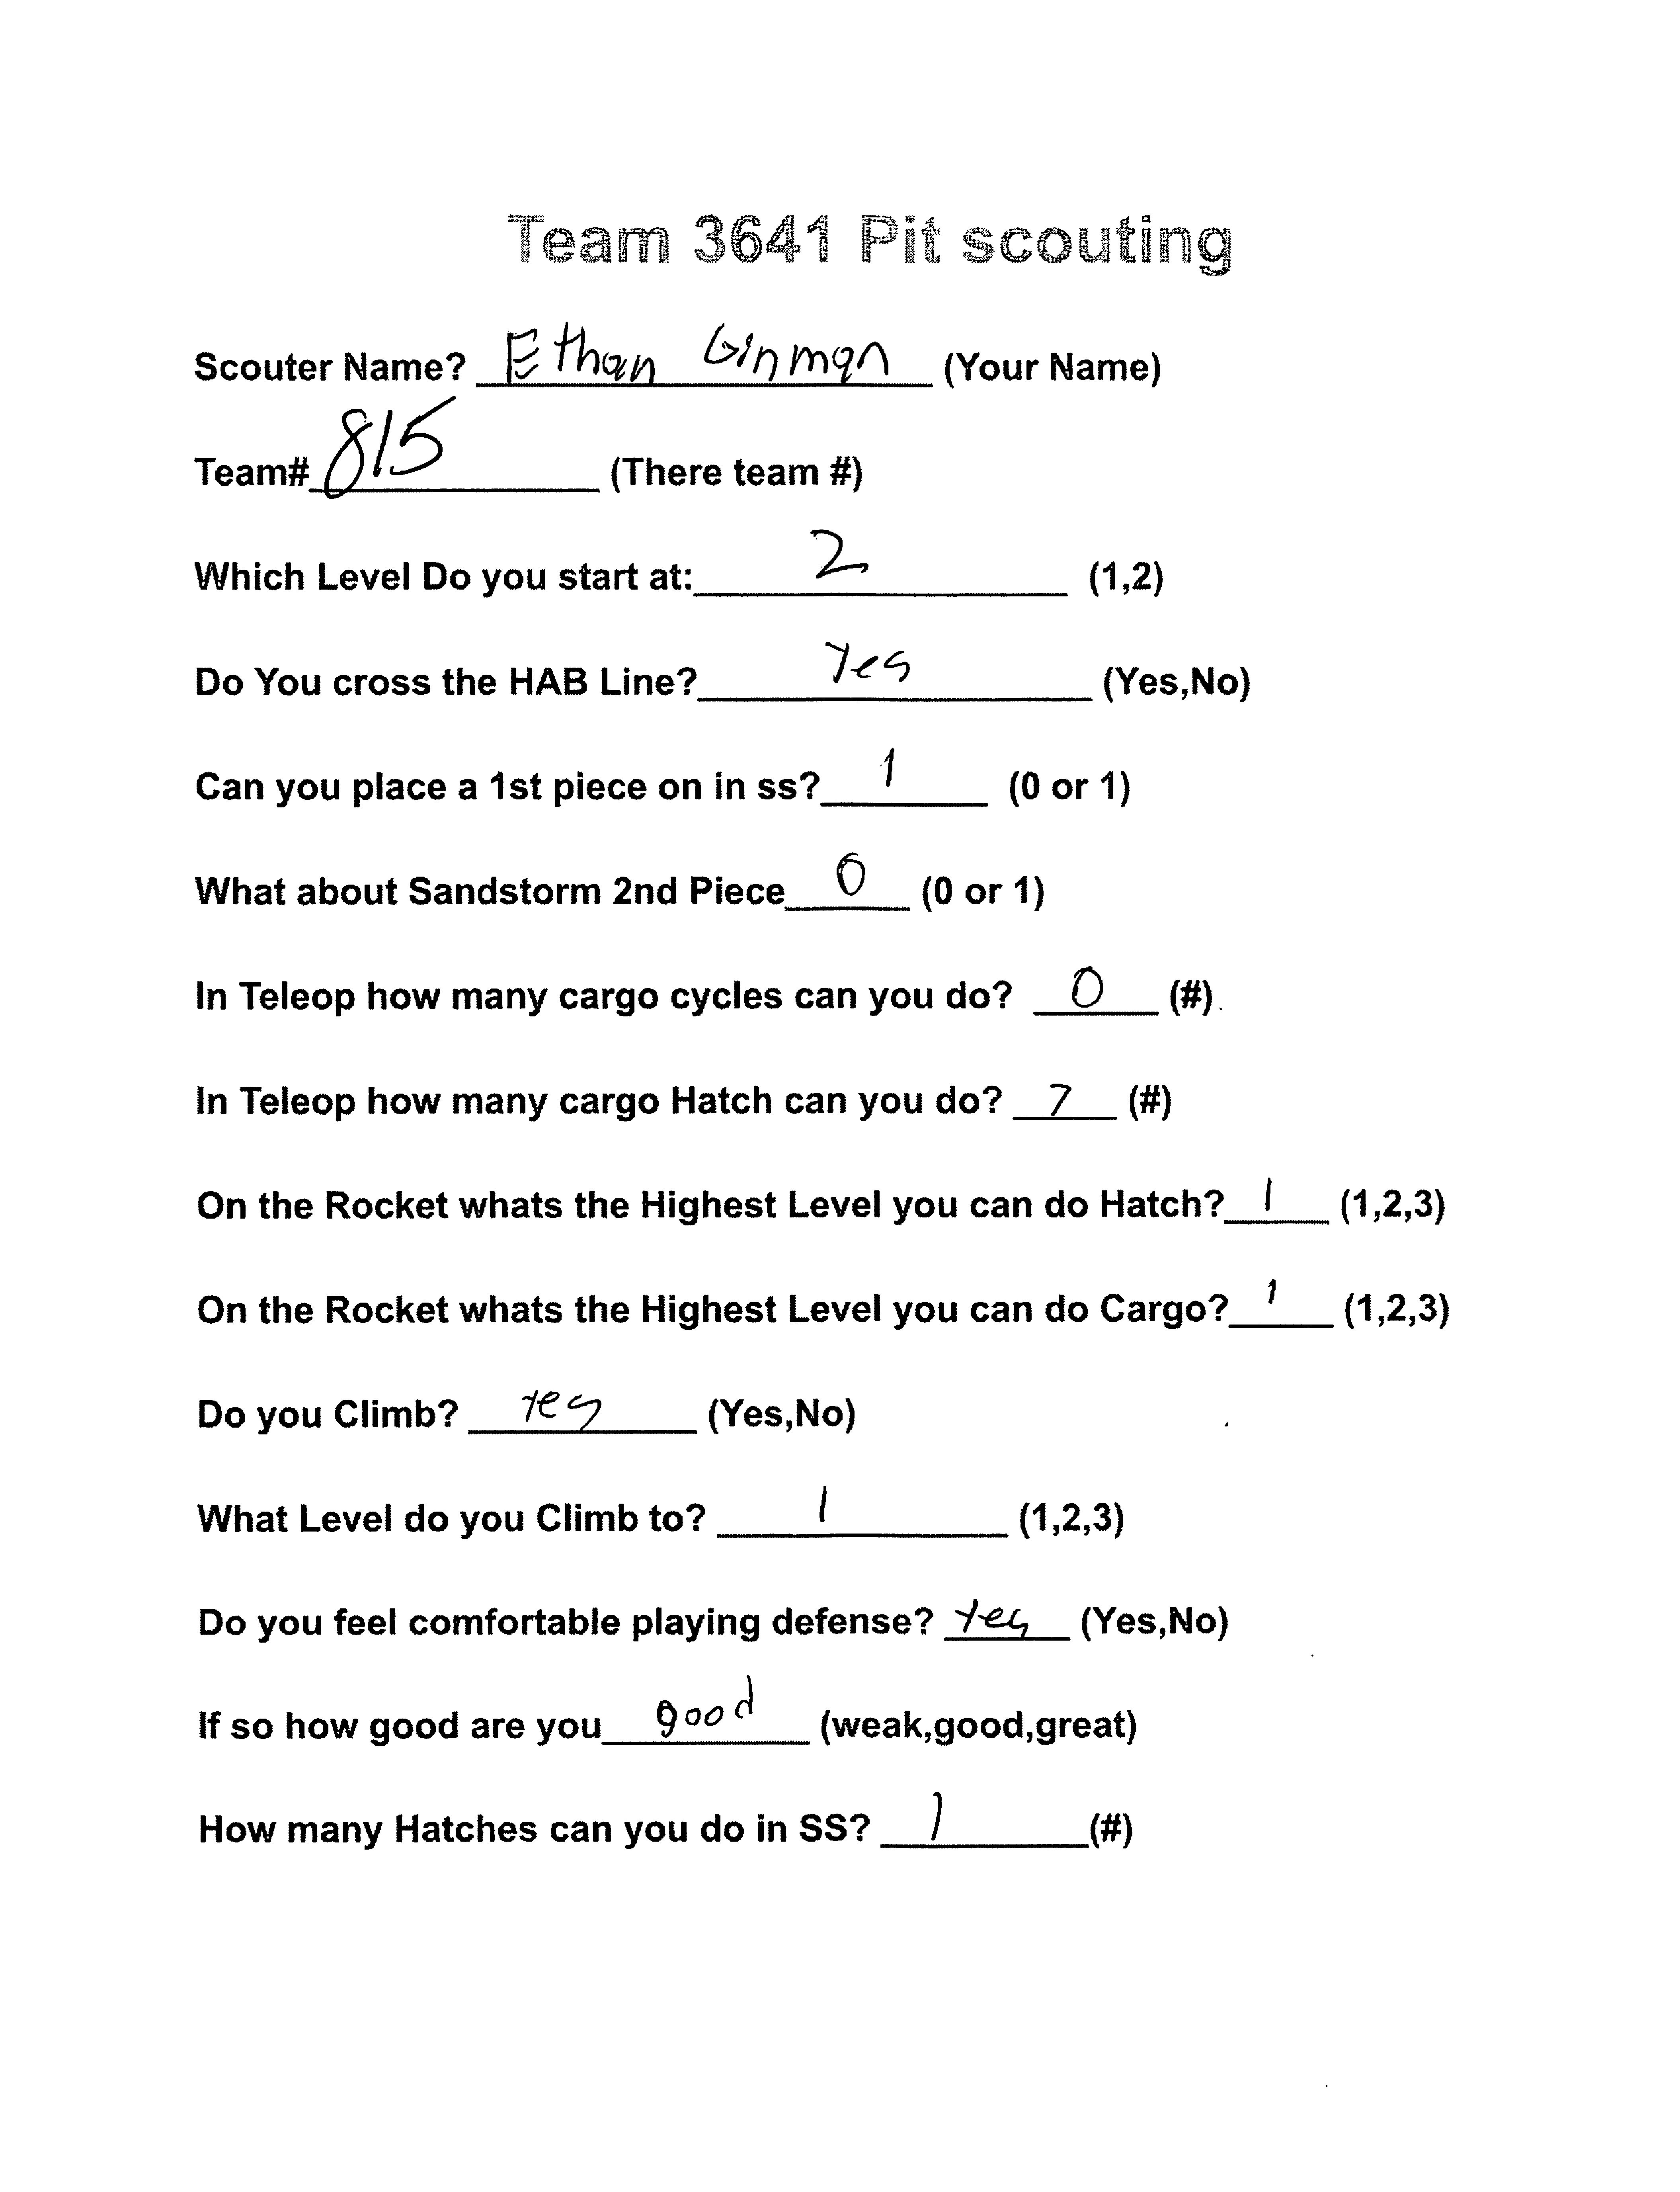 Team 3641 Pit scouting
Scouter Name? Ethan Ginman (Your Name)
Team# 815 (There team #)
Which Level Do you start at: 2 (1,2)
Do You cross the HAB Line? Yes (Yes,No)
Can you place a 1st piece on in ss? 1 (0 or 1)
What about Sandstorm 2nd Piece 0 (0 or 1)
In Teleop how many cargo cycles can you do? 0 (#)
In Teleop how many cargo Hatch can you do? 7 (#)
On the Rocket whats the Highest Level you can do Hatch? 1 (1,2,3)
On the Rocket whats the Highest Level you can do Cargo? 1 (1,2,3)
Do you Climb? Yes (Yes,No)
What Level do you Climb to? 1 (1,2,3)
Do you feel comfortable playing defense? Yes (Yes,No)
If so how good are you good (weak,good,great)
How many Hatches can you do in SS? 1 (#)